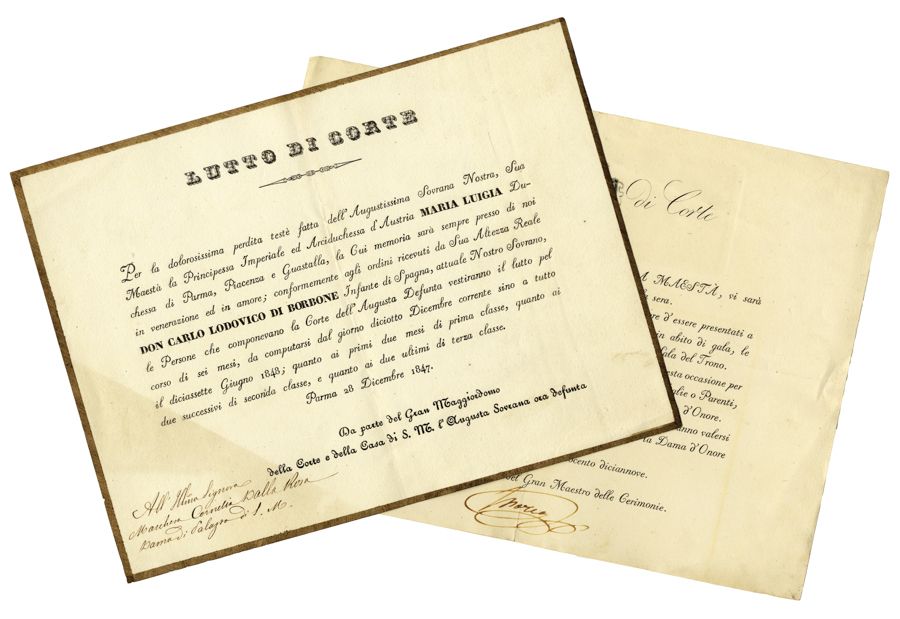 LUTTO DI CORTE
Per la dolorosissima perdita testè fatta dell'Augustissima Sovrana Nostra, Sua
Maestà la Principessa Imperiale ed Arciduchessa d'Austria MARIA LUIGIA Du-
chessa di Parma, Piacenza e Guastalla, la Cui memoria sarà sempre presso di noi
in venerazione ed in amore; conformemente agli ordini ricevuti da Sua Altezza Reale
DON CARLO LODOVICO DI BORBONE Infante di Spagna, attuale Nostro Sovrano,
le Persone che componevano la Corte dell'Augusta Defunta vestiranno il lutto pel
corso di sei mesi, da computarsi dal giorno diciotto Dicembre corrente sino a tutto
il diciassette Giugno 1848; quanto ai primi due mesi di prima classe, quanto ai
due successivi di seconda classe, e quanto ai due ultimi di terza classe.
Parma 28 Dicembre 1847.
Da parte del Gran Maggiordomo
della Corte e della Casa di S. M. l'Augusta Sovrana ora defunta
All' Illma Signora
Marchesa Cornelia Dalla Rosa
Dama di Palazzo di S. M.
di Corte
MAESTÀ, vi sarà
sera.
d'essere presentati a
in abito di gala, le
del Trono.
occasione per
o Parenti,
d'Onore.
valersi
la Dama d'Onore
diciannove.
del Gran Maestro delle Cerimonie.